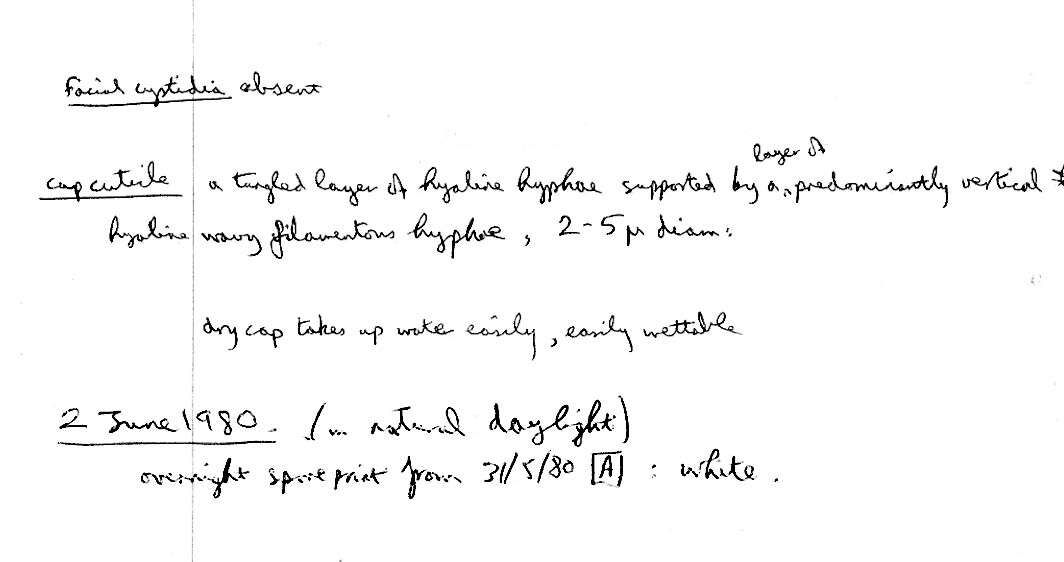 Facial cystidia absent
cap cuticle a tangled layer of hyaline hyphae supported by a layer of predominantly vertical *
hyaline wavy filamentous hyphae, 2-5 µ diam:
dry cap takes up water easily, easily wettable
2 June 1980. (in natural daylight)
overnight spore print from 31/5/80 [A] : white.